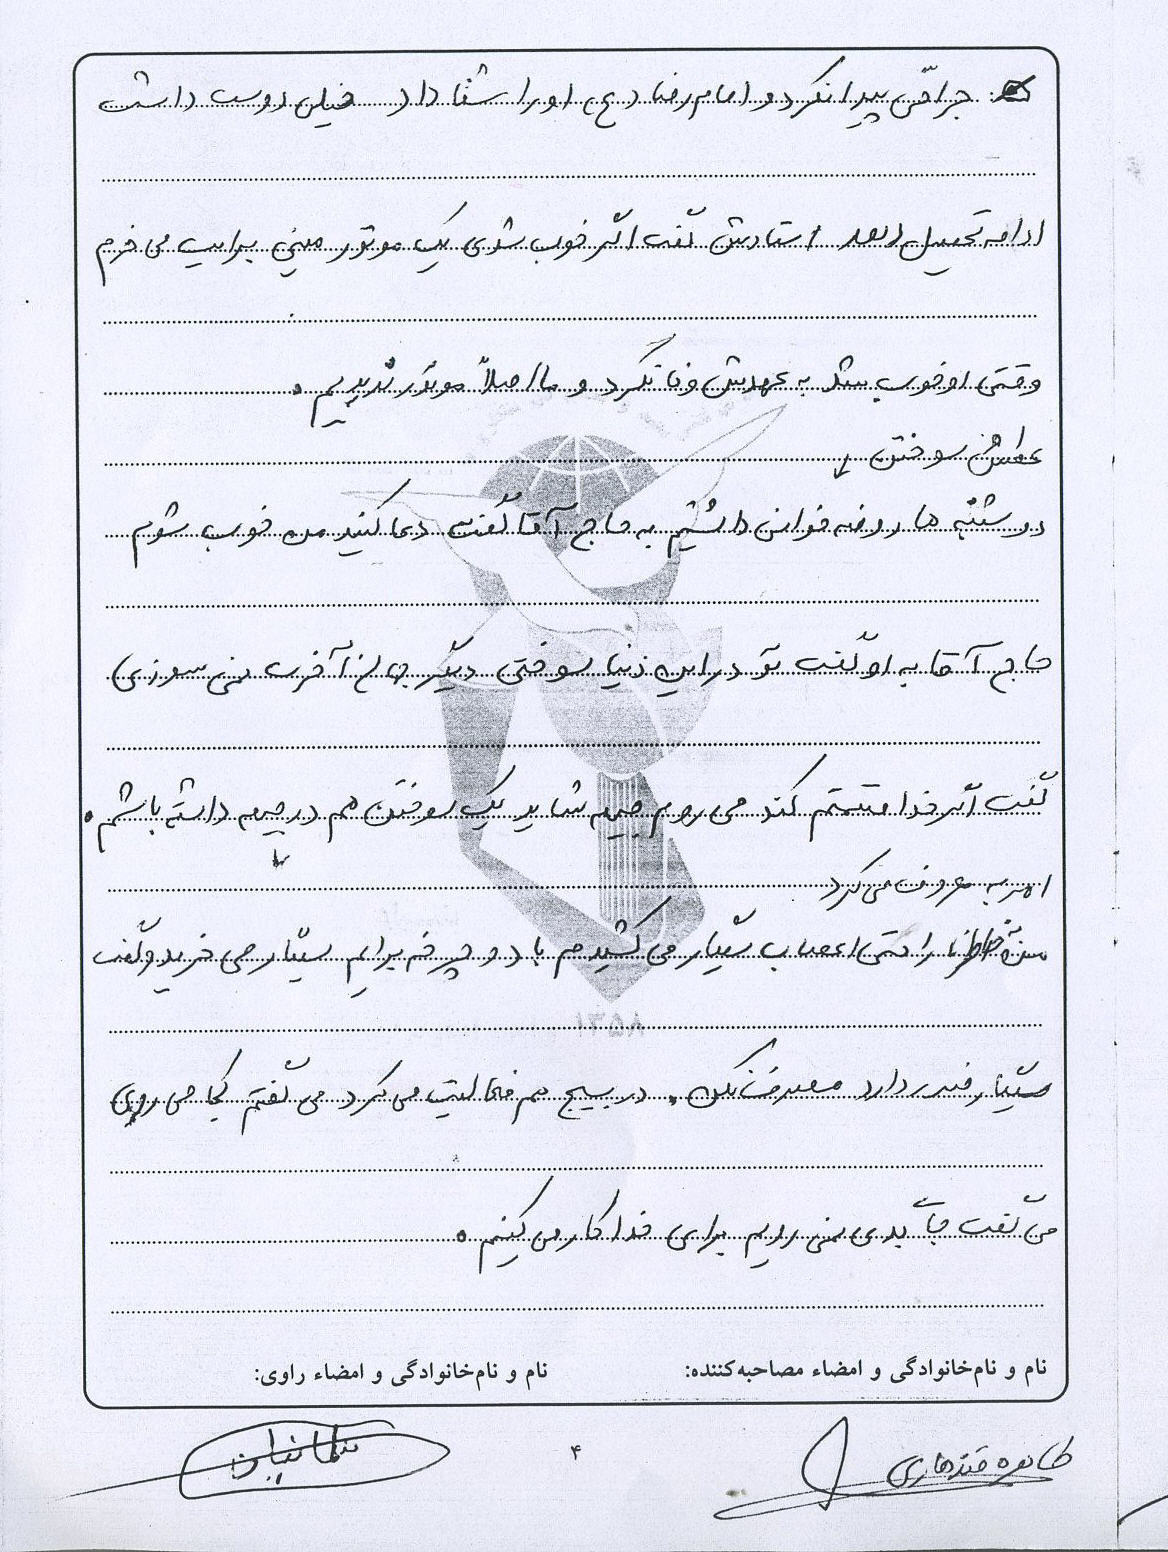 جراحی پیدا نکرد و امام رضا (ع) او را شفا داد خیلی دوست داشت
ادامه تحصیل دهد استادش گفت اگر خوب شوی یک موتور مینی برایت می خرم
وقتی او خوب شد به عهدش وفا نکرد و ما اصلاً موتور ندیدیم .
عطش سوختن
دوشنبه ها روضه خوانی داشتیم به حاج آقا گفت دعا کنید من خوب شوم
حاج آقا به او گفت تو در این دنیا سوختی دیگر جهان آخرت نمی سوزی
گفت اگر خدا قسمتم کند می روم جبهه شاید یک سوختن هم در جبهه داشته باشم .
امر به معروف می کرد
من راحتی اعصاب سیگار می کشیدم با دوچرخه برایم سیگار می خرید و گفت
سیگار ضرر دارد مصرف نکن . در بسیج هم فعالیت می کرد می گفتم کجا می روی
می گفت جای بدی نمی رویم برای خدا کار می کنیم .
۱۳۵۸
نام و نام‌خانوادگی و امضاء مصاحبه‌کننده: نام و نام‌خانوادگی و امضاء راوی:
طاهره قندهاری ۴